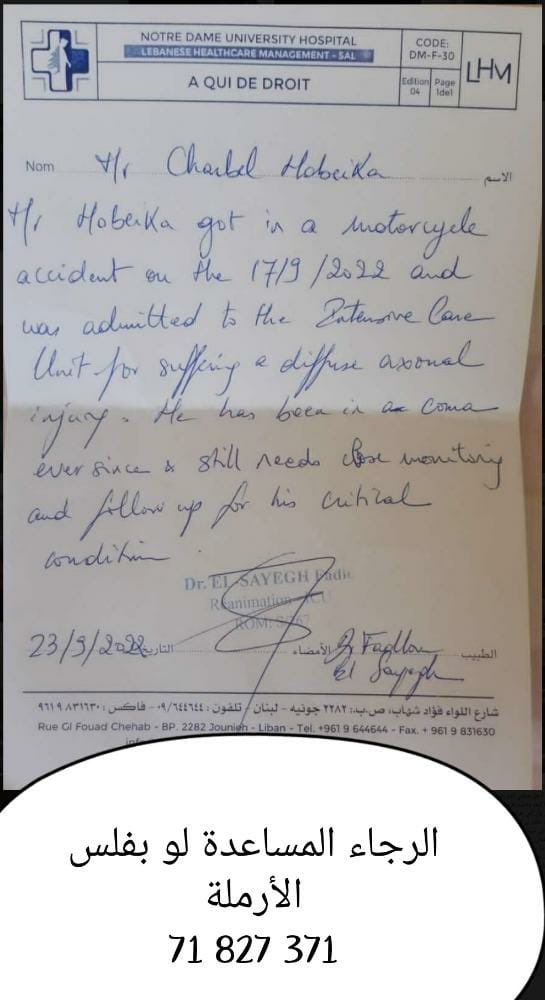 NOTRE DAME UNIVERSITY HOSPITAL
LEBANESE HEALTHCARE MANAGEMENT - SAL
A QUI DE DROIT
CODE:
DM-F-30
Edition
04
Page
1de1
LHM
Nom Mr Charbel Hobeika الاسم
Mr Hobeika got in a motorcycle
accident on the 17/9/2022 and
was admitted to the Intensive Care
Unit for suffering a diffuse axonal
injury. He has been in a coma
ever since & still needs close monitoring
and follow up for his critical
condition.
Dr. EL-SAYEGH Fadlo
Reanimation - ICU
23/9/2022 التاريخ الأمضاء Dr Fadlou الطبيب
El Sayegh
شارع اللواء فؤاد شهاب، ص.ب.: ٢٢٨٢ جونيه - لبنان - تلفون: ٠٩/٦٤٤٦٤٤ - فاكس: ٩٦١٩٨٣١٦٣٠
Rue Gl Fouad Chehab - BP. 2282 Jounieh - Liban - Tel. +961 9 644644 - Fax. + 961 9 831630
الرجاء المساعدة لو بفلس
الأرملة
71 827 371